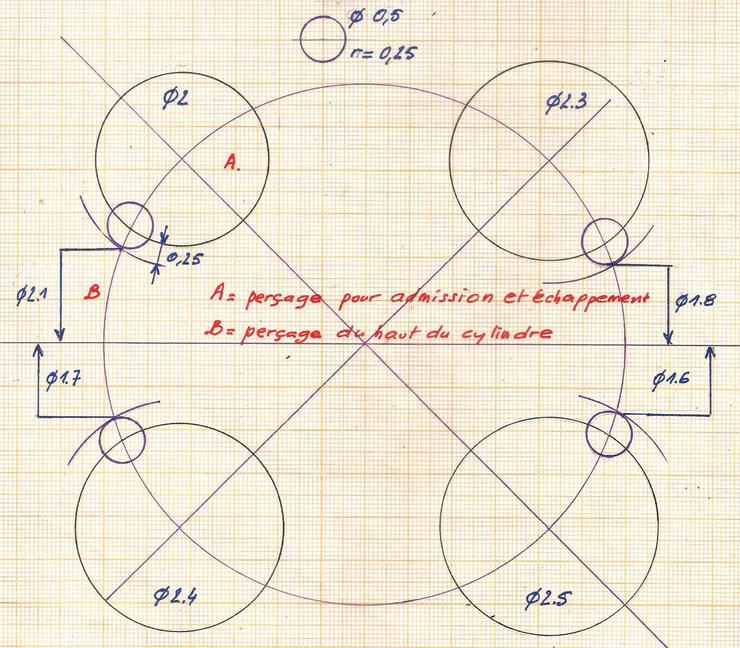 ø 0,5
r = 0,25
ø2
ø2.3
A.
0,25
ø2.1
B
A = perçage pour admission et échappement
ø1.8
B = perçage du haut du cylindre
ø1.7
ø1.6
ø2.4
ø2.5